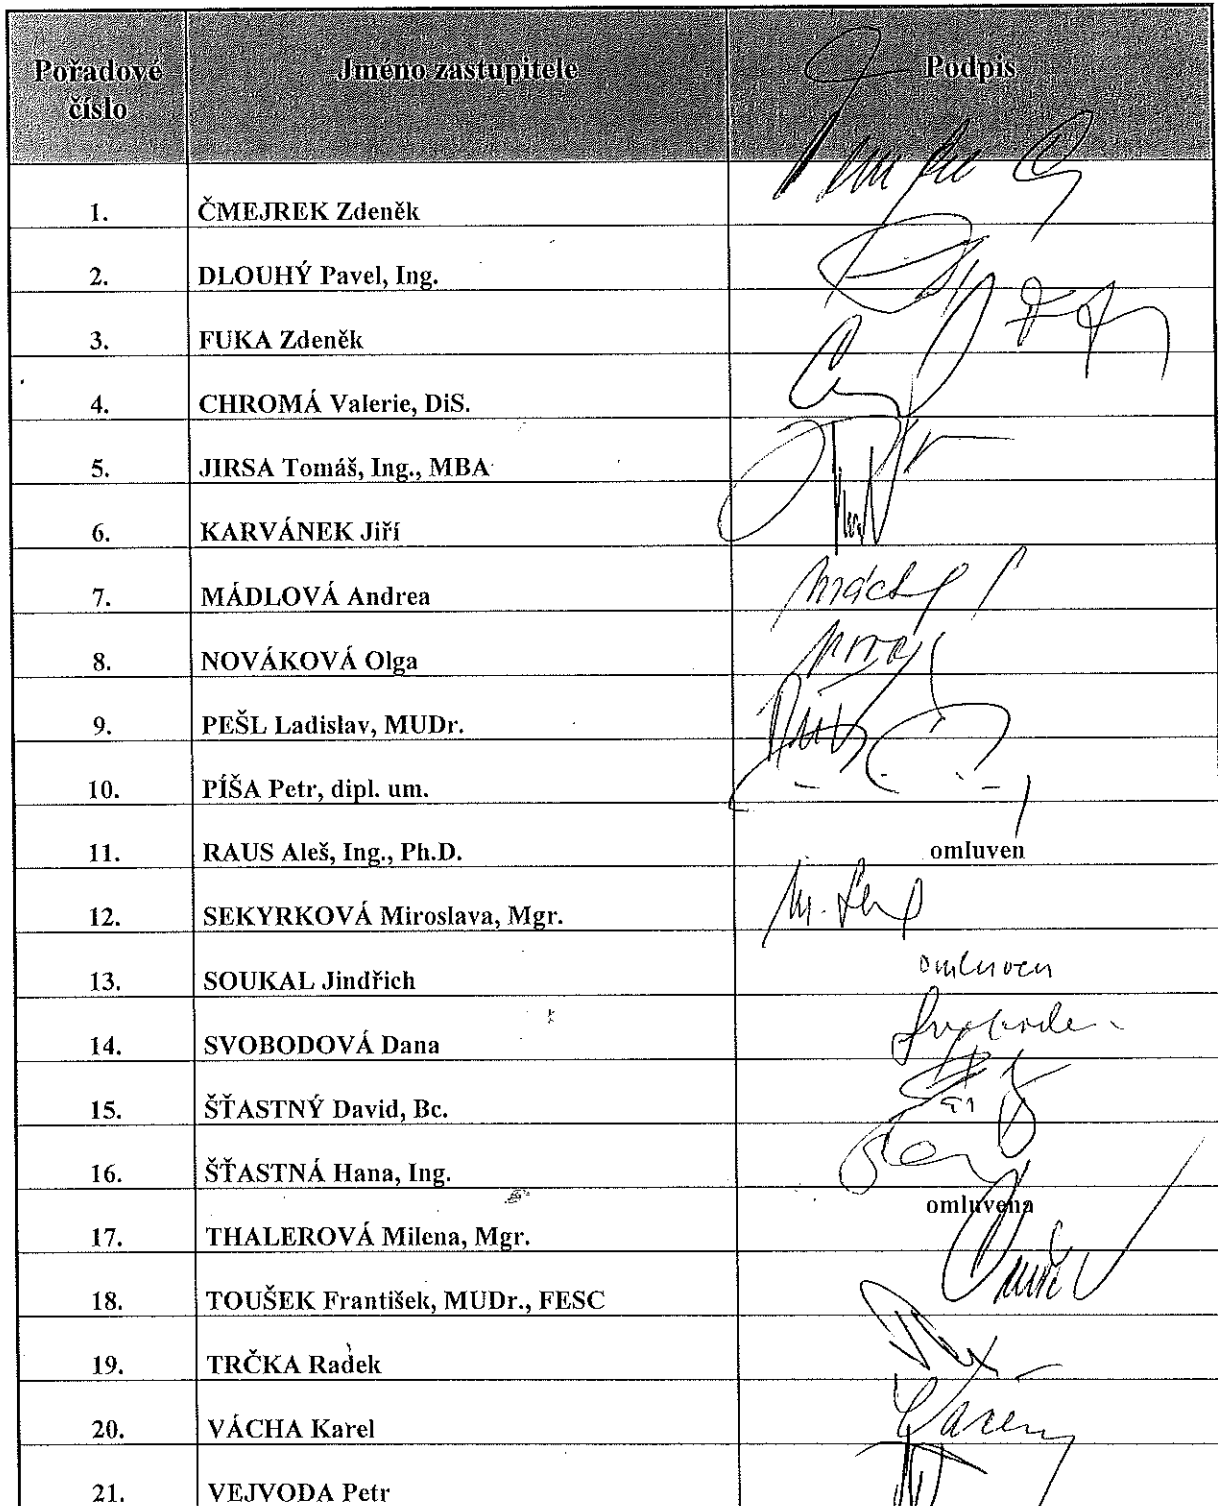 Pořadové číslo Jméno zastupitele Podpis
1. ČMEJREK Zdeněk
2. DLOUHÝ Pavel, Ing.
3. FUKA Zdeněk
4. CHROMÁ Valerie, DiS.
5. JIRSA Tomáš, Ing., MBA
6. KARVÁNEK Jiří
7. MÁDLOVÁ Andrea
8. NOVÁKOVÁ Olga
9. PEŠL Ladislav, MUDr.
10. PÍŠA Petr, dipl. um.
11. RAUS Aleš, Ing., Ph.D. omluven
12. SEKYRKOVÁ Miroslava, Mgr.
13. SOUKAL Jindřich omluven
14. SVOBODOVÁ Dana
15. ŠŤASTNÝ David, Bc.
16. ŠŤASTNÁ Hana, Ing.
17. THALEROVÁ Milena, Mgr. omluvena
18. TOUŠEK František, MUDr., FESC
19. TRČKA Radek
20. VÁCHA Karel
21. VEJVODA Petr